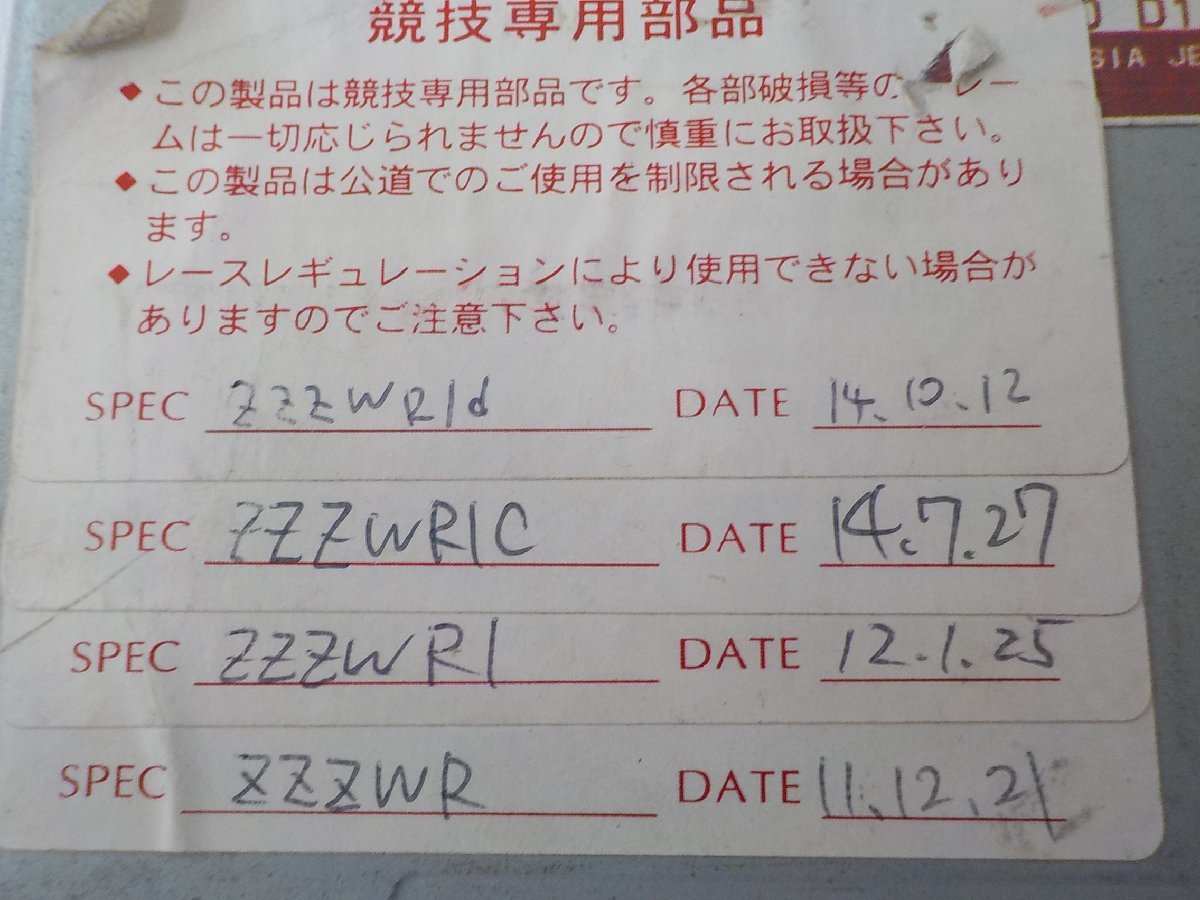 競技専用部品
D1
SIA JE
◆この製品は競技専用部品です。各部破損等の レー
ムは一切応じられませんので慎重にお取扱下さい。
◆この製品は公道でのご使用を制限される場合があり
ます。
◆レースレギュレーションにより使用できない場合が
ありますのでご注意下さい。
SPEC ZZZWR1d DATE 14.10.12
SPEC ZZZWR1C DATE 14.7.27
SPEC ZZZWR1 DATE 12.1.25
SPEC ZZZWR DATE 11.12.21